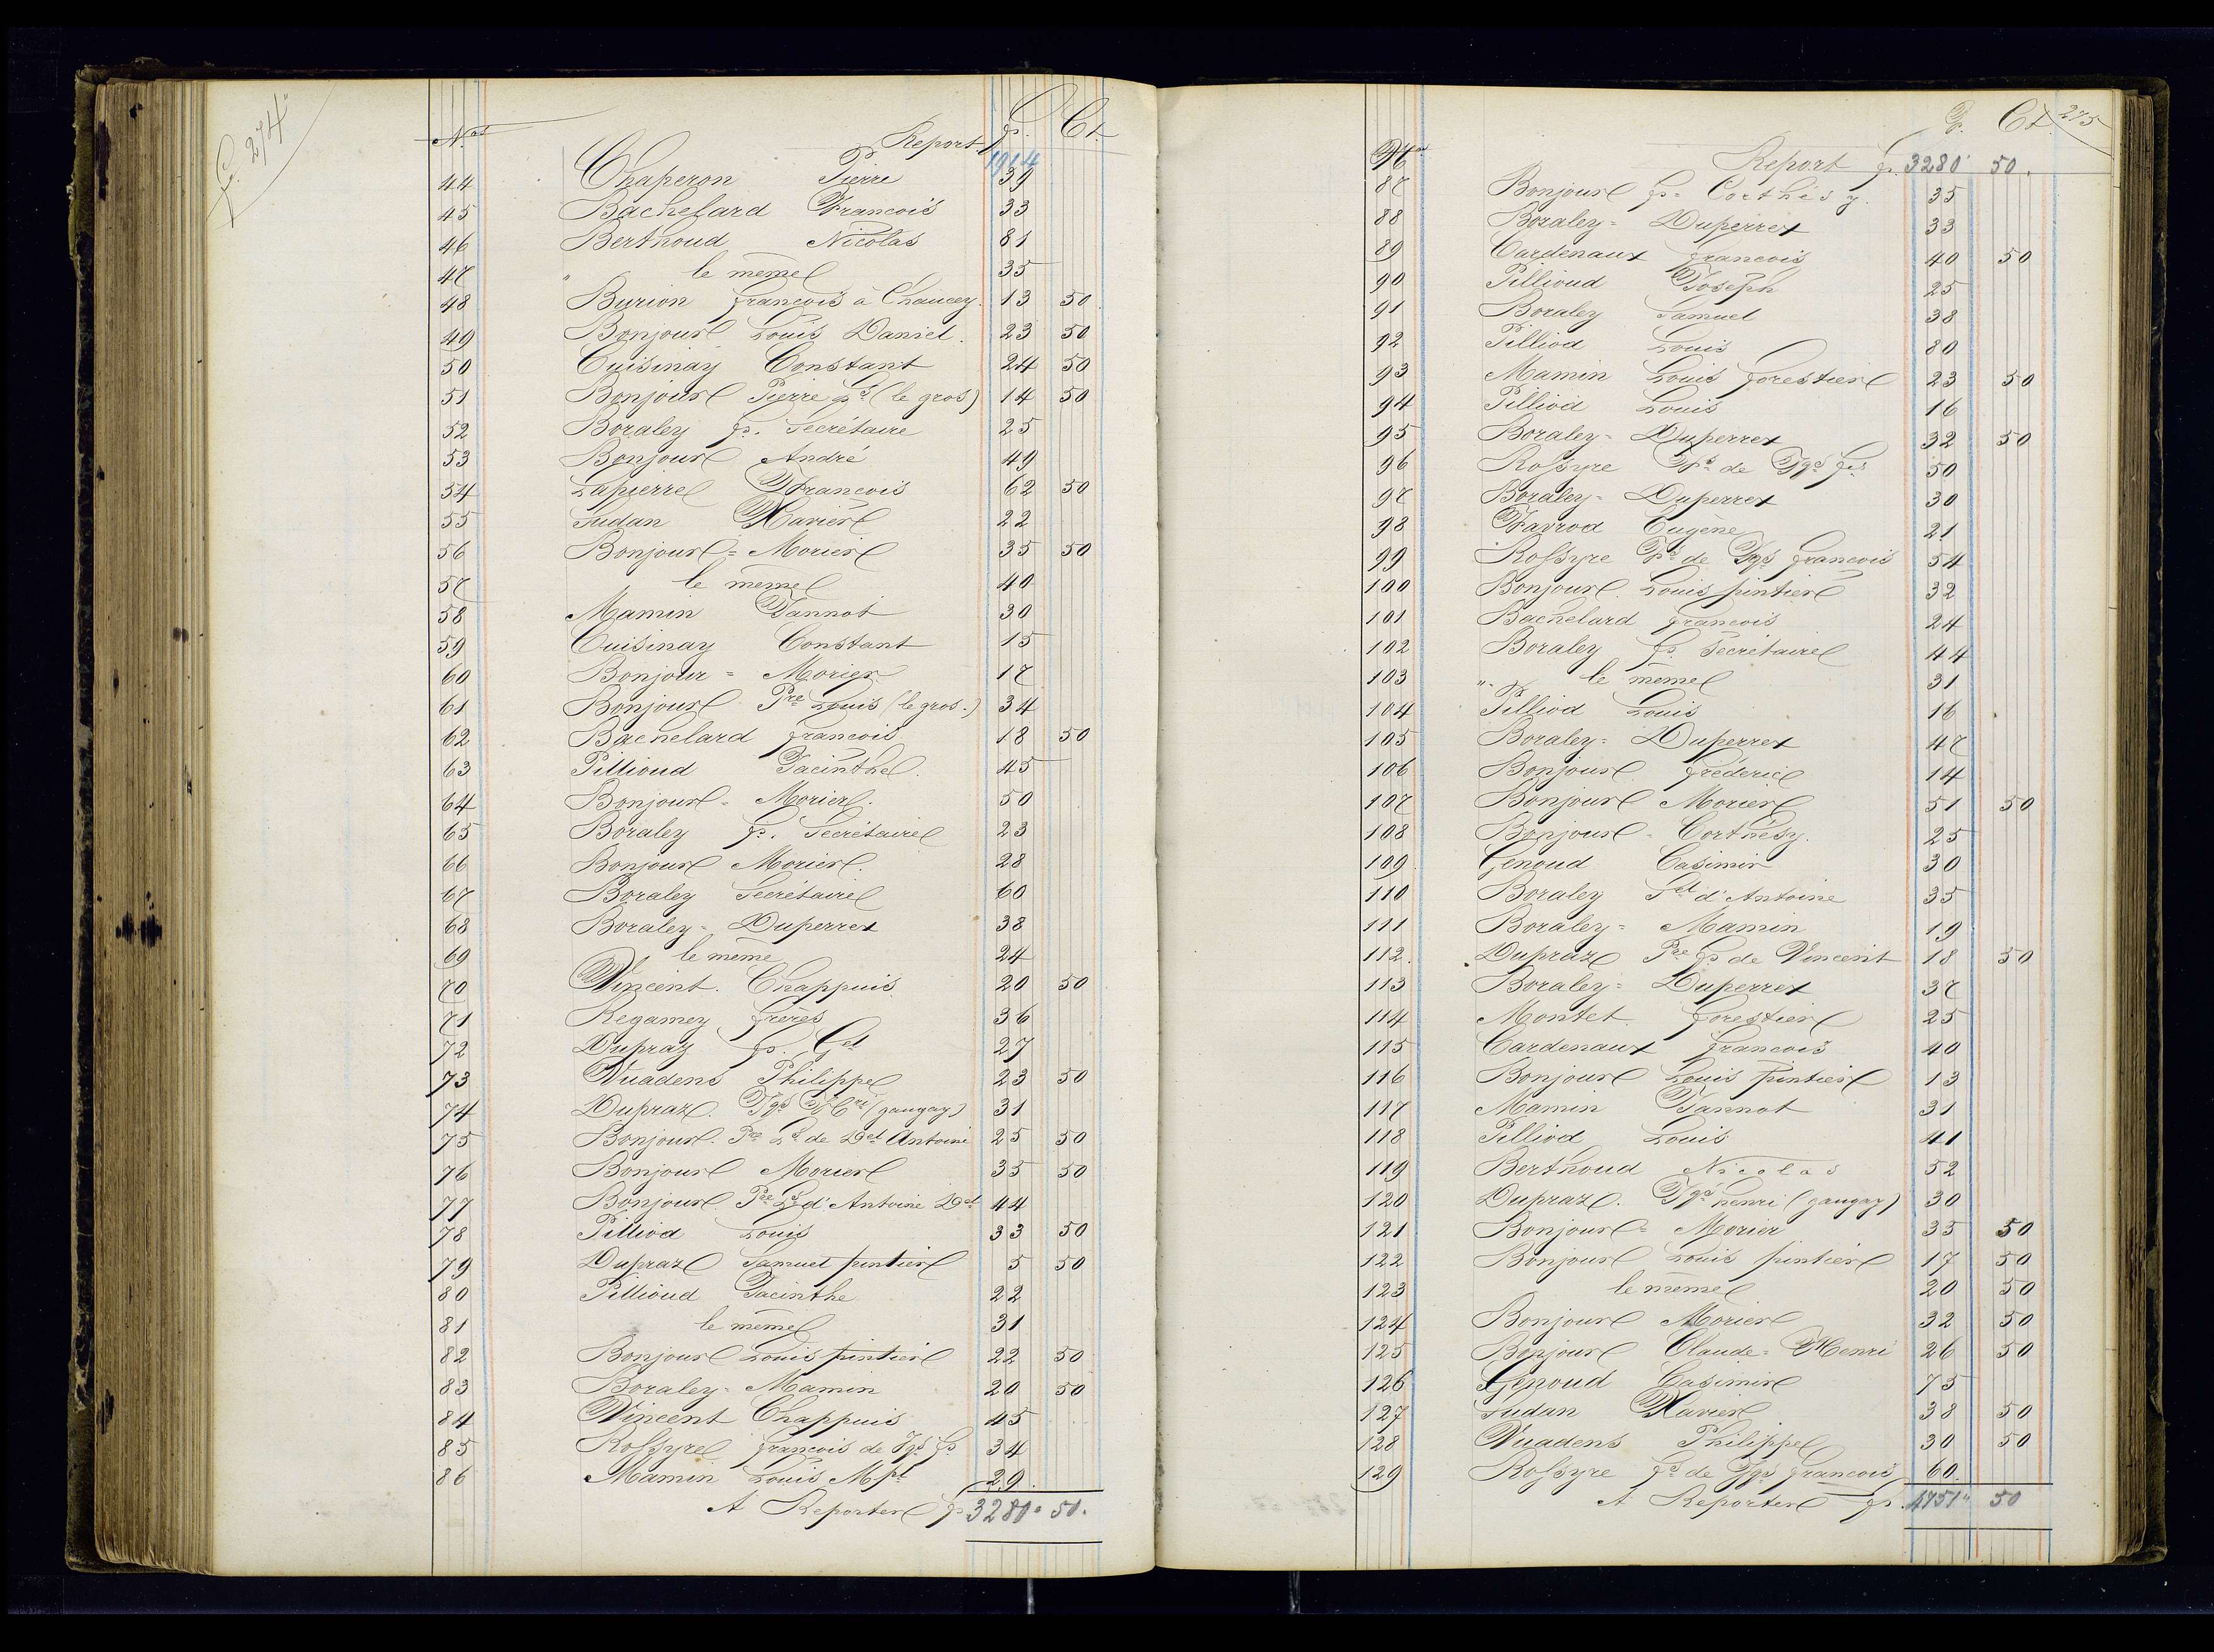 Fo 274
Nos Report fr. Ct.
1914
44 Chaperon Pierre 39
45 Bachelard Francois 33
46 Berthoud Nicolas 81
47 " le même 35
48 Burion francois à Chaucey. 13 50
49 Bonjour Louis Daniel. 23 50
50 Cuisinay Constant 24 50
51 Bonjour Pierre Ls (le gros) 14 50
52 Boraley fs. Secrétaire 25
53 Bonjour André 49
54 Lapierre Francois 62 50
55 Sudan Xavier 22
56 Bonjour = Morier 35 50
57 le même 40
58 Mamin Jannot 30
59 Cuisinay Constant 15
60 Bonjour = Morier 17
61 Bonjour Pre Louis (le gros.) 34
62 Bachelard francois 18 50
63 Pillioud Jacinthe. 45
64 Bonjour = Morier. 50
65 Boraley fs. Secrétaire 23
66 Bonjour Morier. 28
67 Boraley Secrétaire 60
68 Boraley = Duperrex 38
69 le même 24
70 Vincent. Chappuis. 20 50
71 Regamey frères 36
72 Dupraz fs. Gel 27
73 Vuadens Philippe 23 50
74 Dupraz. Jqs (gaugay) 31
75 Bonjour. Pre Ls de Del Antoine 25 50
76 Bonjour Morier 35 50
77 Bonjour. Pre Ls d'Antoine Del 44
78 Pilliod Louis 33 50
79 Dupraz Samuel pintier 5 50
80 Pillioud Jacinthe 22
81 le même 31
82 Bonjour Louis pintier 22 50
83 Boraley = Mamin 20 50
84 Vincent Chappuis 45
85 Rossyre francois de Jqs fs 34
86 Mamin Louis Mpl 29.
A Reporter fr. 3280 " 50.
275
Nos fr. Ct.
Report fr. 3280 50.
87 Bonjour fs = Corthésy. 35
88 Boraley = Duperrex 33
89 Cardenaux francois 40 50
90 Pillioud Joseph 25
91 Boraley Samuel 38
92 Pilliod Louis 80
93 Mamin Louis forestier 23 50
94 Pilliod Louis 16
95 Boraley = Duperrex 32 50
96 Rossyre de Jqs fs 50
97 Boraley = Duperrex 30
98 Favrod Eugène 21
99 Rossyre de Jqs francois 54
100 Bonjour. Louis pintier 32
101 Bachelard francois 24
102 Boraley fs. Secrétaire 44
103 " le même 31
104 Pilliod Louis 16
105 Boraley = Duperrex 47
106 Bonjour fréderic 14
107 Bonjour Morier 51 50
108 Bonjour = Corthésy. 25
109 Genoud Casimir 30
110 Boraley Sel d'Antoine 35
111 Boraley = Mamin 19
112. Dupraz Pre fs de Vincent 18 50
113 Boraley = Duperrex 37
114 Montet forestier 25
115 Cardenaux francois 40
116 Bonjour Louis pintier 13
117 Mamin Jannot 31
118 Pilliod Louis 41
119 Berthoud Nicolas 52
120 Dupraz. Jqs henri (gaugay) 30
121 Bonjour = Morier 35 50
122 Bonjour Louis pintier 17 50
123 le même 20 50
124 Bonjour Morier 32 50
125 Bonjour Claude = Henri 26 50
126 Genoud Casimir 75
127 Sudan Xavier 38 50
128 Vuadens Philippe 30 50
129 Rossyre fs de Jqs francois 60.
A Reporter fr. 4751 " 50